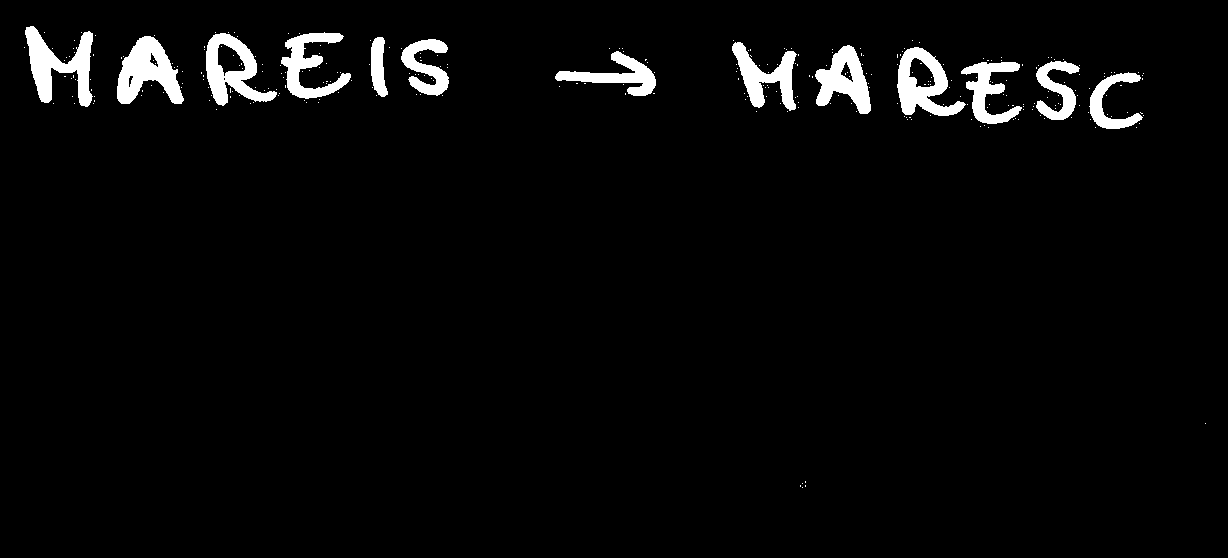 MAREIS → MARESC